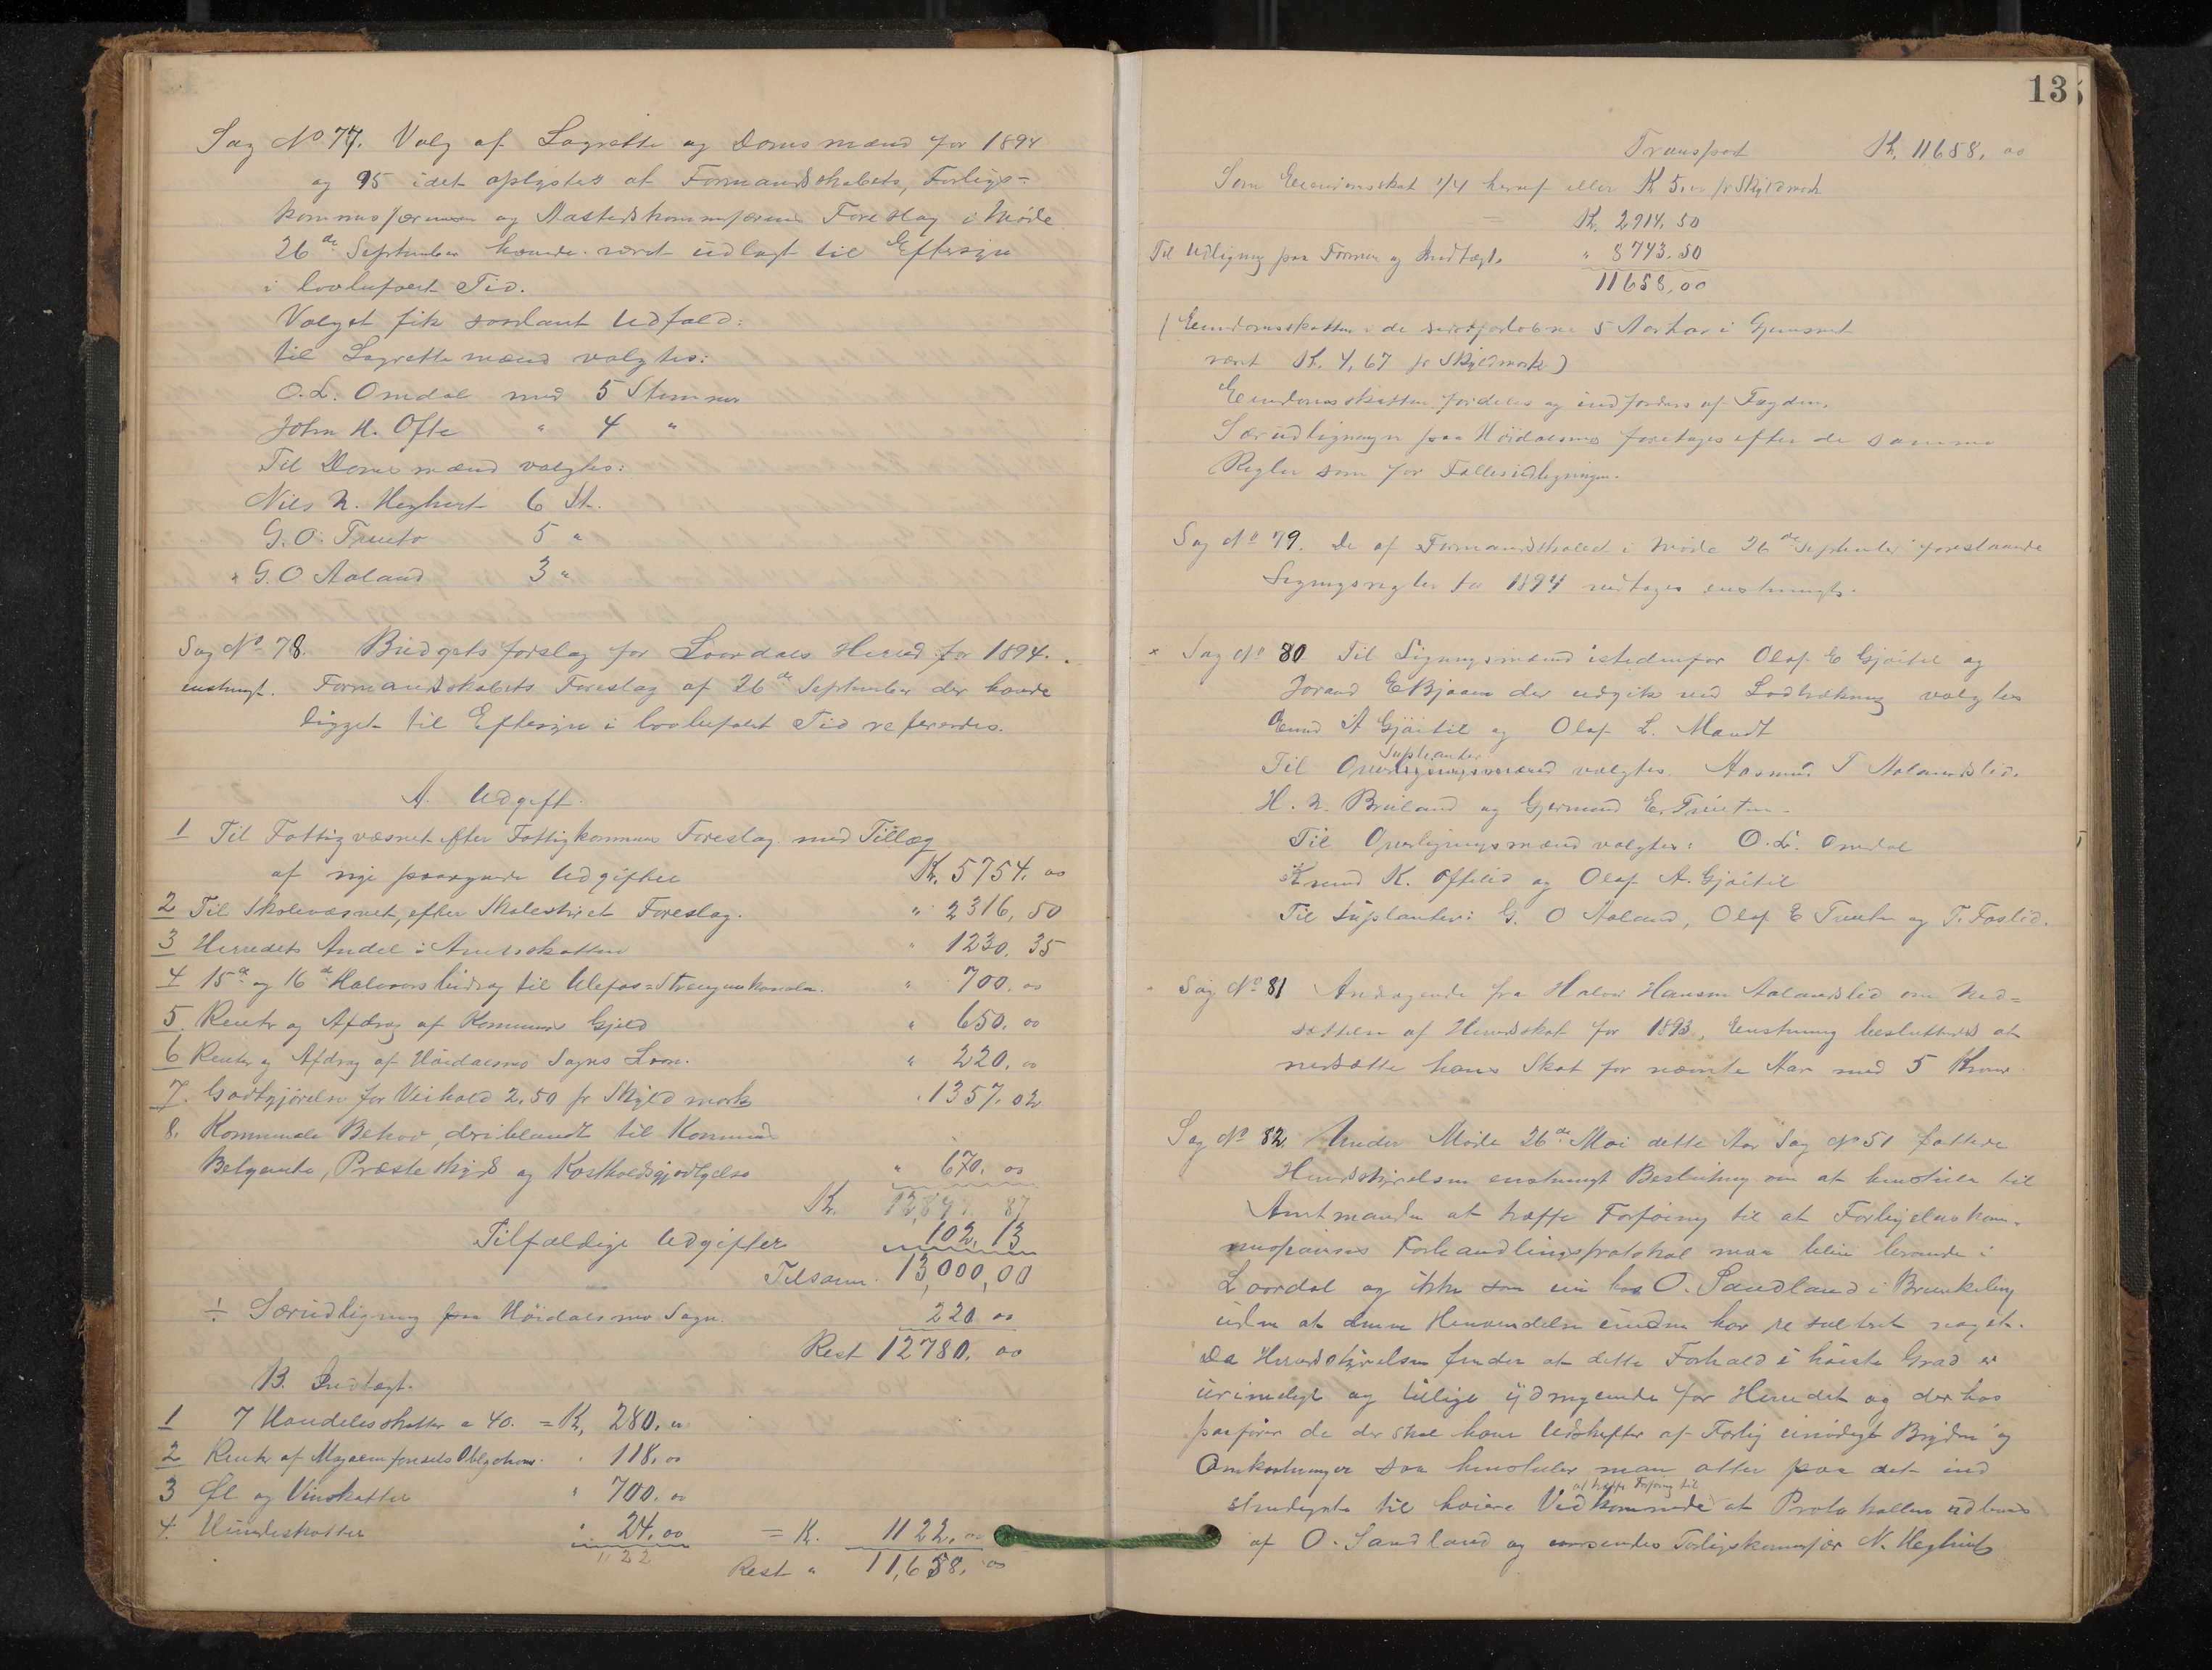 Sag No 77. Valg af Lagrette og Domsmænd for 1894
og 95 idet oplystes at Formandskabets, Forligs=
kommisjærenes og Aastedskommisærenes Foreslag i Møde
26de September havde været udlagt til Eftersyn
i lovbefalet Tid.
Valget fik saadant Udfald:
til Lagrettemænd valgtes:
O.L. Omdal med 5 Stemmer
John H. Ofte " 4 "
Til Domsmænd valgtes:
Nils N. Heghuet 6 St.
G.O. Trueto 5 "
G.O Aaland 3 "
Sag No 78. Budgetsforslag for Laardals Herred for 1894.
enstemgt. Formandskabets Foreslag af 26de September der havde
ligget til Eftersyn i lovbefalet Tid referertes.
A. Udgift.
1 Til Fattigvæsnet efter Fattigkommis Foreslag med Tillæg
af nye paaregnede Udgifter Kr. 5754. 00
2 Til Skolevæsnet, efter Skolestyret Foreslag. " 2316, 50
3 Herredets Andel i Amtsskatten " 1230. 35
4 15de og 16de Halvaarsbidrag til Ulefos=Strengenkanalen. " 700. 00
5 Renter og Afdrag af Kommunens Gjeld " 650. 00
6 Renter og Afdrag af Høidalsmo Sogns Laan. " 220. 00
7. Godtgjørelse for Veihold 2,50 pr Skyldmark " 1357. 02
8. Kommunale Behov, deriblandt til Kommune
Betjente, Præsteskyds og Kostholdsgodtgjørelse " 670. 00
Kr. 12,897. 87
Tilfældige Udgifter 102. 13
Tilsam. 13,000,00
÷ Særudligning paa Høidalsmo Sogn. 220 00
Rest 12780. 00
B. Indtægt.
1 7 Handelsskatter a 40. = Kr. 280. 00
2 Renter af Magasinfondets Obligationer " 118. 00
3 Øl og Vinskatter " 700. 00
4. Hundeskatter " 24. 00 = Kr. 1122. 00
1122
Rest " 11,658. 00
13
Transport Kr. 11658. 00
Som Eiendomsskat 1/4 heraf eller K 5.00 pr Skyldmark
= Kr. 2914. 50
Til Udligning paa Formue og Indtægt. " 8743. 50
11658,00
(Eiendomsskatten i de sidstforløbne 5 Aar har i Gjennemsnit
været Kr. 4,67 pr Skyldmark)
Eiendomsskatten fordeles og indfordres af Fogden.
Særudligningen paa Høidalsmo foretages efter de samme
Regler som for Fællesudligningen.
Sag No 79. De af Formandskabet i Møde 26de September foreslaaede
Ligningsregler for 1894 vedtages enstemmigt.
× Sag No 80 Til Ligningsmænd istedenfor Olaf E Gjøitil og
Jorand E Bjaaen der udgik ved Lodtrækning valgtes
Emund A Gjøitil og Olaf L. Mandt
Suplianter
Til Overligningsmænd valgtes. Aasmund T Aalandslid.
H. N. Breiland og Gjermund E. Trueten.
Til Overligningsmænd valgtes: O.L. Omdal
Knud K. Oftelid og Olaf A. Gjøitil
Til Suplanter: G. O Aaland, Olaf E Trueten og T. Foslid.
Sag No 81 Andragende fra Halvor Hansen Aalandslid om Ned=
sættelse af Herredsskat for 1893, Enstemmig besluttedes at
nedsætte hans Skat for nævnte Aar med 5 Kroner
Sag No 82. Under Møde 26de Mai dette Aar Sag No 51 fattede
Herredstyrelsen enstemmigt Beslutning om at henstille til
Amtmanden at træffe Forføining til at Forligelseskom=
missionens Forhandlingsprotokol maa blive beroende i
Laardal og ikke som nu hos O. Sandland i Brunkeberg
uden at denne Henvendelse endnu har resulteret noget.
Da Herredstyrelsen finder at dette Forhold i høieste Grad er
urimeligt og tillige ydmygende for Herredet og derhos
paafører de der skal have Udskrifter af Forlig unødigt Bryderi og
Omkostninger saa henstiller man atter paa det ind
at træffe Føining til
stendigste til høiere Vedkommende at Protokollen udleveres
af O. Sandland og oversendes Forligskommisær N. Heghuet